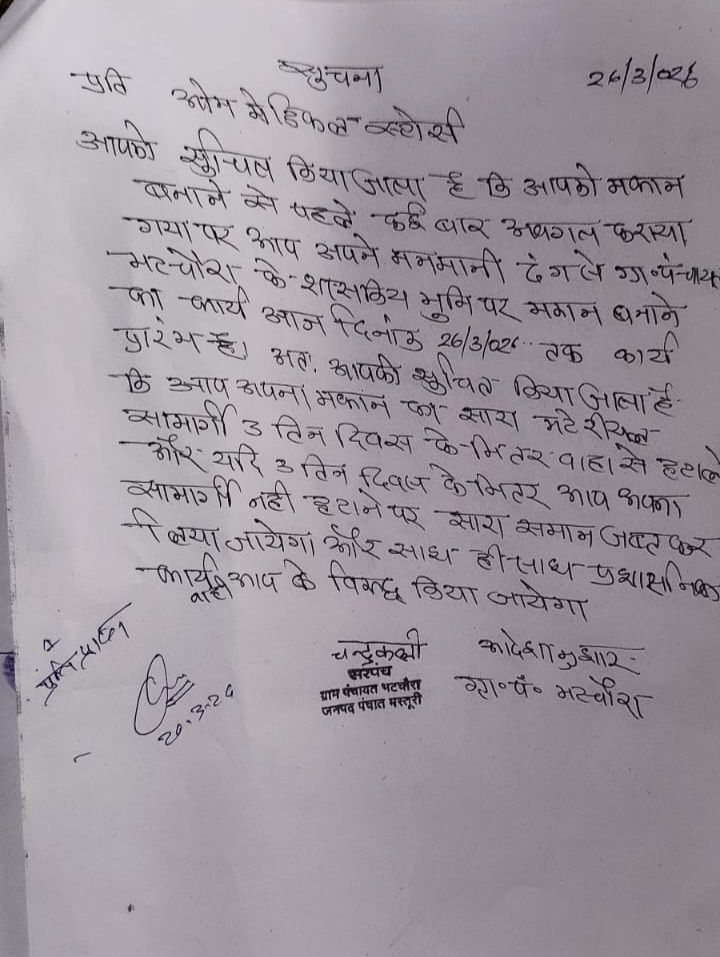 सुचना
26/3/026
प्रति ओम मेडिकल स्टोर्स
आपको सुचित किया जाता है कि आपको मकान
बनाने से पहले कई बार अवगत कराया
गया पर आप अपने मनमानी ढंग से ग्रा॰पंचायत
भटचौरा के शासकिय भुमि पर मकान बनाने
का कार्य आज दिनांक 26/3/026 तक कार्य
प्रारंभ है। अतः आपको सुचित किया जाता है
कि आप अपना मकान का सारा मटेरीयल
सामाग्री 3 तिन दिवस के भितर वाहा से हटाले
और यदि 3 तिन दिवस के भितर आप अपना
सामाग्री नही हटाने पर सारा समान जब्त कर
लिया जायेगा और साथ ही साथ प्रशासनिक
कार्यवाही आप के विरुद्ध किया जायेगा
चन्द्रकली
आदेशानुसार
सरपंच
ग्राम पंचायत भटचौरा
जनपद पंचात मस्तूरी
ग्रा॰ पं॰ भटचौरा